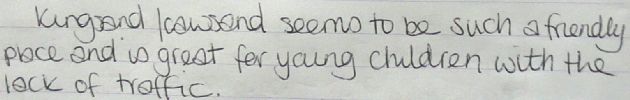 Kingsand/cawsand seems to be such a friendly
place and is great for young children with the
lack of traffic.